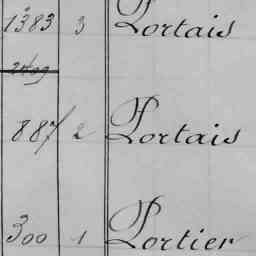 1383 3 Portais
2409
887 2 Portais
300 1 Portier